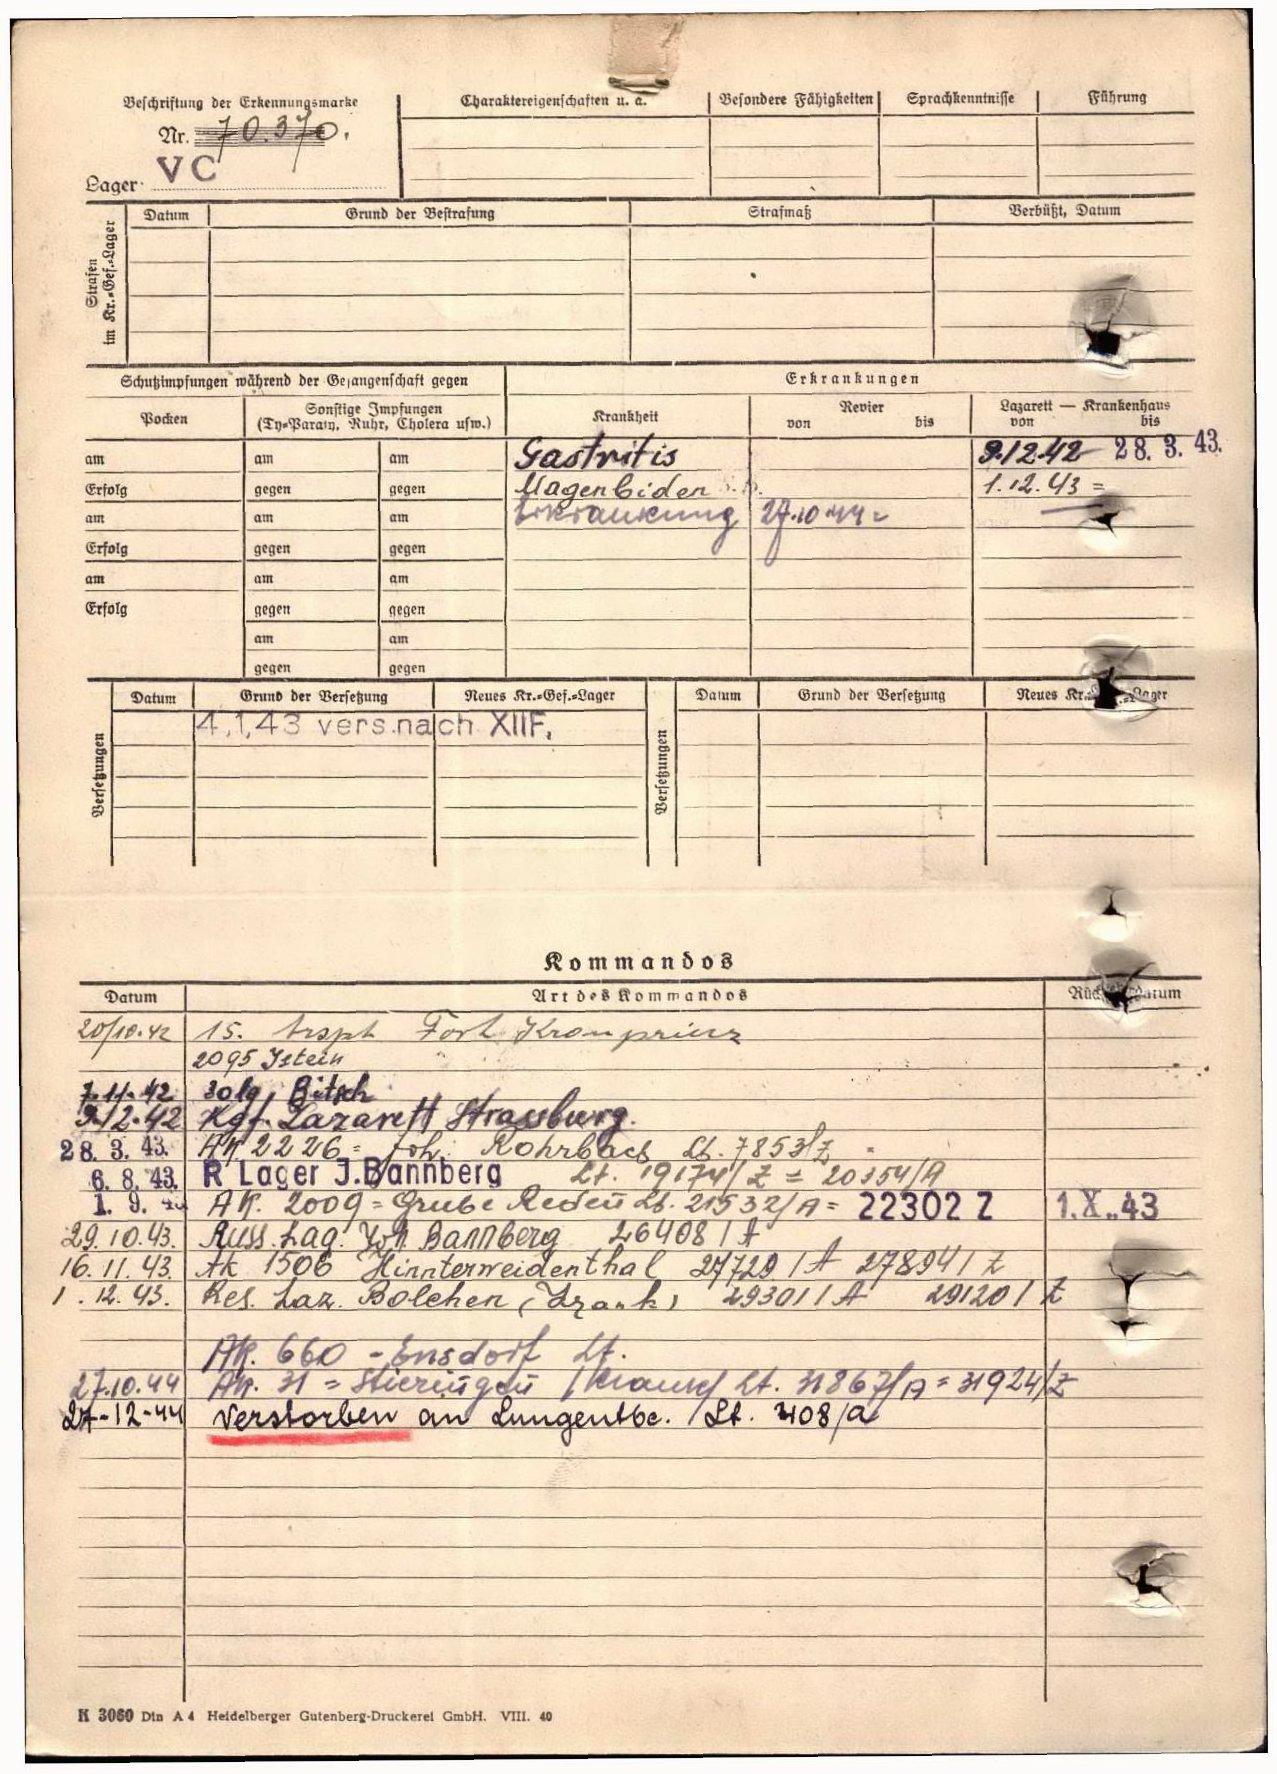 Beschriftung der Erkennungsmarke
Nr. 70.370.
Lager: VC
Charaktereigenschaften u. a.
Besondere Fähigkeiten
Sprachkenntnisse
Führung
Strafen im Kr.-Gef.-Lager
Datum
Grund der Bestrafung
Strafmaß
Verbüßt, Datum
Schutzimpfungen während der Gefangenschaft gegen
Erkrankungen
Pocken
Sonstige Impfungen
(Ty=Paraty, Ruhr, Cholera usw.)
Krankheit
Revier
von bis
Lazarett — Krankenhaus
von bis
am am am Gastritis 9.12.42 - 28. 3. 43.
Erfolg gegen gegen Magenleiden 1.12.43 =
am am am Erkrankung 27.10.44 -
Erfolg gegen gegen
am am am
Erfolg gegen gegen
am am
gegen gegen
Versetzungen
Datum Grund der Versetzung Neues Kr.=Gef.=Lager
4,1,43 vers.nach XIIF,
Versetzungen
Datum Grund der Versetzung Neues Kr. Lager
Kommandos
Datum Art des Kommandos Rückkehrdatum
20/10.42 15. trspt Fort Kronprinz
2095 Istein
7.11.42 Bitsch
9.12.42 Kgf. Lazarett Strassburg.
28. 3. 43. AK 2226 = Joh. Rohrbach Lt. 7853/Z
6. 8. 43. R Lager J.Bannberg Lt. 19174/Z = 20354/A
1. 9. 43 AK. 2009 = Grube Reden Lt. 21532/A = 22302 Z 1.X.43
29.10.43. Russ. Lag. Joh Bannberg 26408/A
16.11.43. AK 1506 Hinnterweidenthal 27729/A 27894/Z
1.12.43. Res. Laz. Bolchen (Krank) 29301/A 29120/Z
AK. 660 - Ensdorf Lt.
27.10.44 AK. 31 = Stieringen (krank) Lt. 31867/A = 31924/Z
27-12-44 Verstorben an Lungentbc. Lt. 3108/a
K 3060 Din A 4 Heidelberger Gutenberg-Druckerei GmbH. VIII. 40